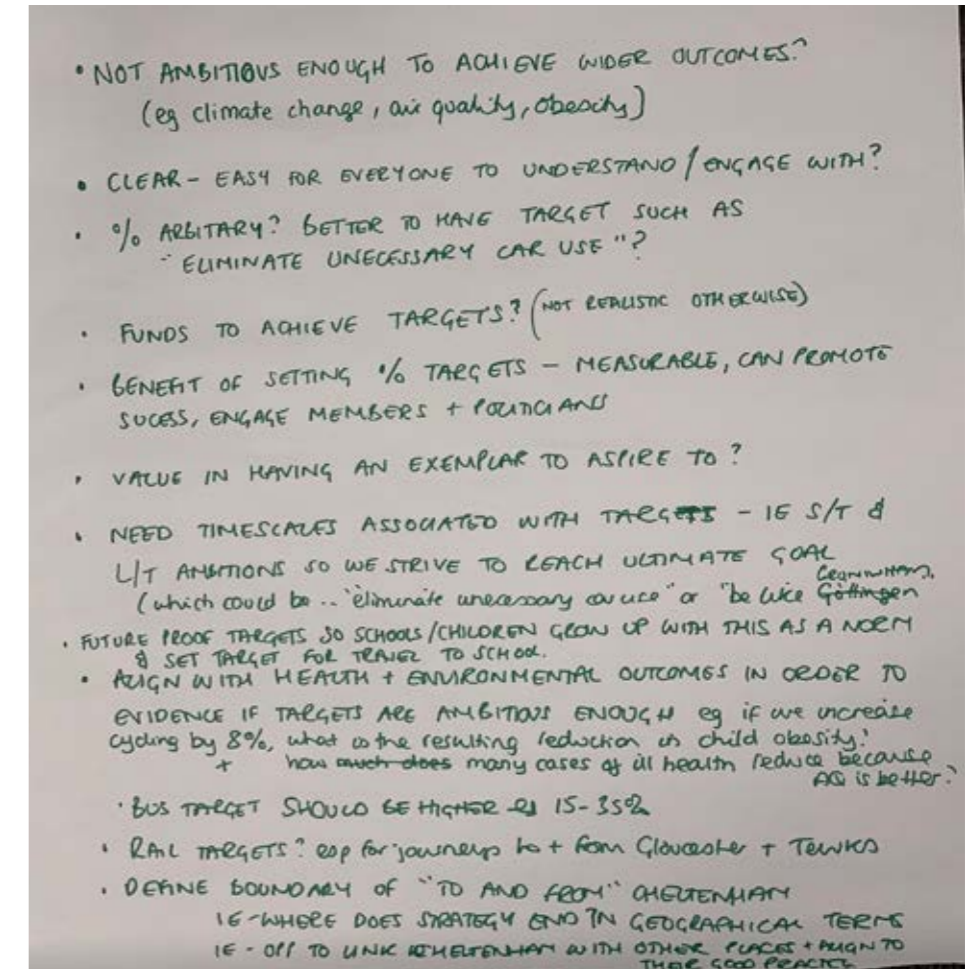 • NOT AMBITIOUS ENOUGH TO ACHIEVE WIDER OUTCOMES?
(eg climate change, air quality, obesity)
• CLEAR - EASY FOR EVERYONE TO UNDERSTAND / ENGAGE WITH?
• % ARBITARY? BETTER TO HAVE TARGET SUCH AS
"ELIMINATE UNECESSARY CAR USE"?
• FUNDS TO ACHIEVE TARGETS? (NOT REALISTIC OTHERWISE)
• BENEFIT OF SETTING % TARGETS - MEASURABLE, CAN PROMOTE
SUCESS, ENGAGE MEMBERS + POLITICIANS
• VALUE IN HAVING AN EXEMPLAR TO ASPIRE TO?
• NEED TIMESCALES ASSOCIATED WITH TARGETS - IE S/T &
L/T AMBITIONS SO WE STRIVE TO REACH ULTIMATE GOAL
(which could be .. "eliminate unecessary car use" or "be like Göttingen
• FUTURE PROOF TARGETS SO SCHOOLS/CHILDREN GROW UP WITH THIS AS A NORM
& SET TARGET FOR TRAVEL TO SCHOOL.
• ALIGN WITH HEALTH + ENVIRONMENTAL OUTCOMES IN ORDER TO
EVIDENCE IF TARGETS ARE AMBITIOUS ENOUGH eg if we increase
cycling by 8%, what is the resulting reduction in child obesity?
+ how much does many cases of ill health reduce because
AQ is better?
• BUS TARGET SHOULD BE HIGHER eg 15-35%
• RAIL TARGETS? esp for journeys to + from Gloucester + Tewks
• DEFINE BOUNDARY OF "TO AND FROM" CHELTENHAM
IE - WHERE DOES STRATEGY END IN GEOGRAPHICAL TERMS
IE - OPP TO LINK CHELTENHAM WITH OTHER PLACES + ALIGN TO
THEIR GOOD PRACTICE